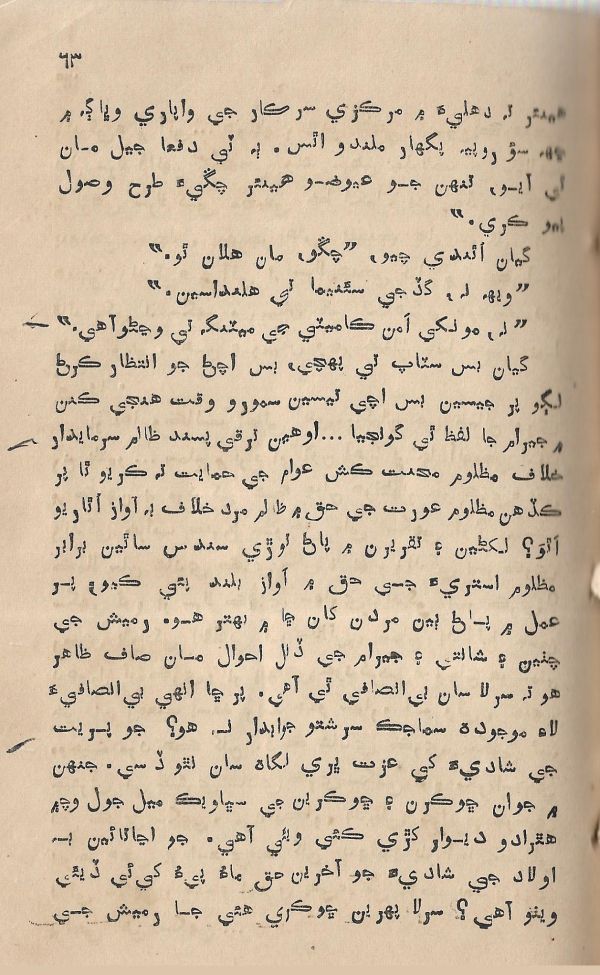 ٦٣
هينئر تہ دهليءَ ۾ مرڪزي سرڪار جي واپاري وڀاڳ ۾
ڇهہ سؤ روپيہ پگهار ملندو اٿس. ٻہ ٽي دفعا جيل مان
ٿي آيو، تنهن جو عيوضو هينئر چڱيءَ طرح وصول
پيو ڪري.”
گيان آنندي چيو، ”چڱو، مان هلان ٿو.”
”ويهہ نہ، گڏجي سئنيما تي هلنداسين.”
”نہ، مونکي اَمن ڪاميٽي جي ميٽنگ تي وڃڻو آهي.”
گيان بس سٽاپ تي پهچي، بس اچڻ جو انتظار ڪرڻ
لڳو پر جيسين بس اچي تيسين سمورو وقت هنجي ڪنن
۾ جيرام جا لفظ ٿي گونجيا...اوهين ترقي پسند ظالم سرمايدار
خلاف مظلوم محنت ڪش عوام جي حمايت تہ ڪريو ٿا پر
ڪڏهن مظلوم عورت جي حق ۾ ظالم مرد خلاف بہ آواز اُٿاريو
اَٿوَ؟ لکڻين ۽ تقريرن ۾ پاڻ توڙي سندس ساٿين برابر
مظلوم استريءَ جي حق ۾ آواز بلند پئي ڪيو، پر
عمل ۾ پاڻ ٻين مردن کان ڇا ۾ بهتر هو. رميش جي
چٺين ۽ شانتي ۽ جيرام جي ڏنل احوال مان صاف ظاهر
هو تہ سرلا سان بي‌انصافي ٿي آهي. پر ڇا انهي بي‌انصافيءَ
لاءِ موجوده سماجڪ سرشتو جوابدار نہ هو؟ جو پريت
جي شاديءَ کي عزت ڀري نگاهہ سان نٿو ڏسي. جنهن
۾ جوان ڇوڪرن ۽ ڇوڪرين جي سڀاويڪ ميل جول وچ ۾
هٿرادو ديوار کڙي ڪئي ويئي آهي. جو اڃاتائين بہ
اولاد جي شاديءَ جو آخرين حق ماءُ پيءُ کي ئي ڏيئي
ويٺو آهي؟ سرلا پهرين ڇوڪري هئي جا رميش جي